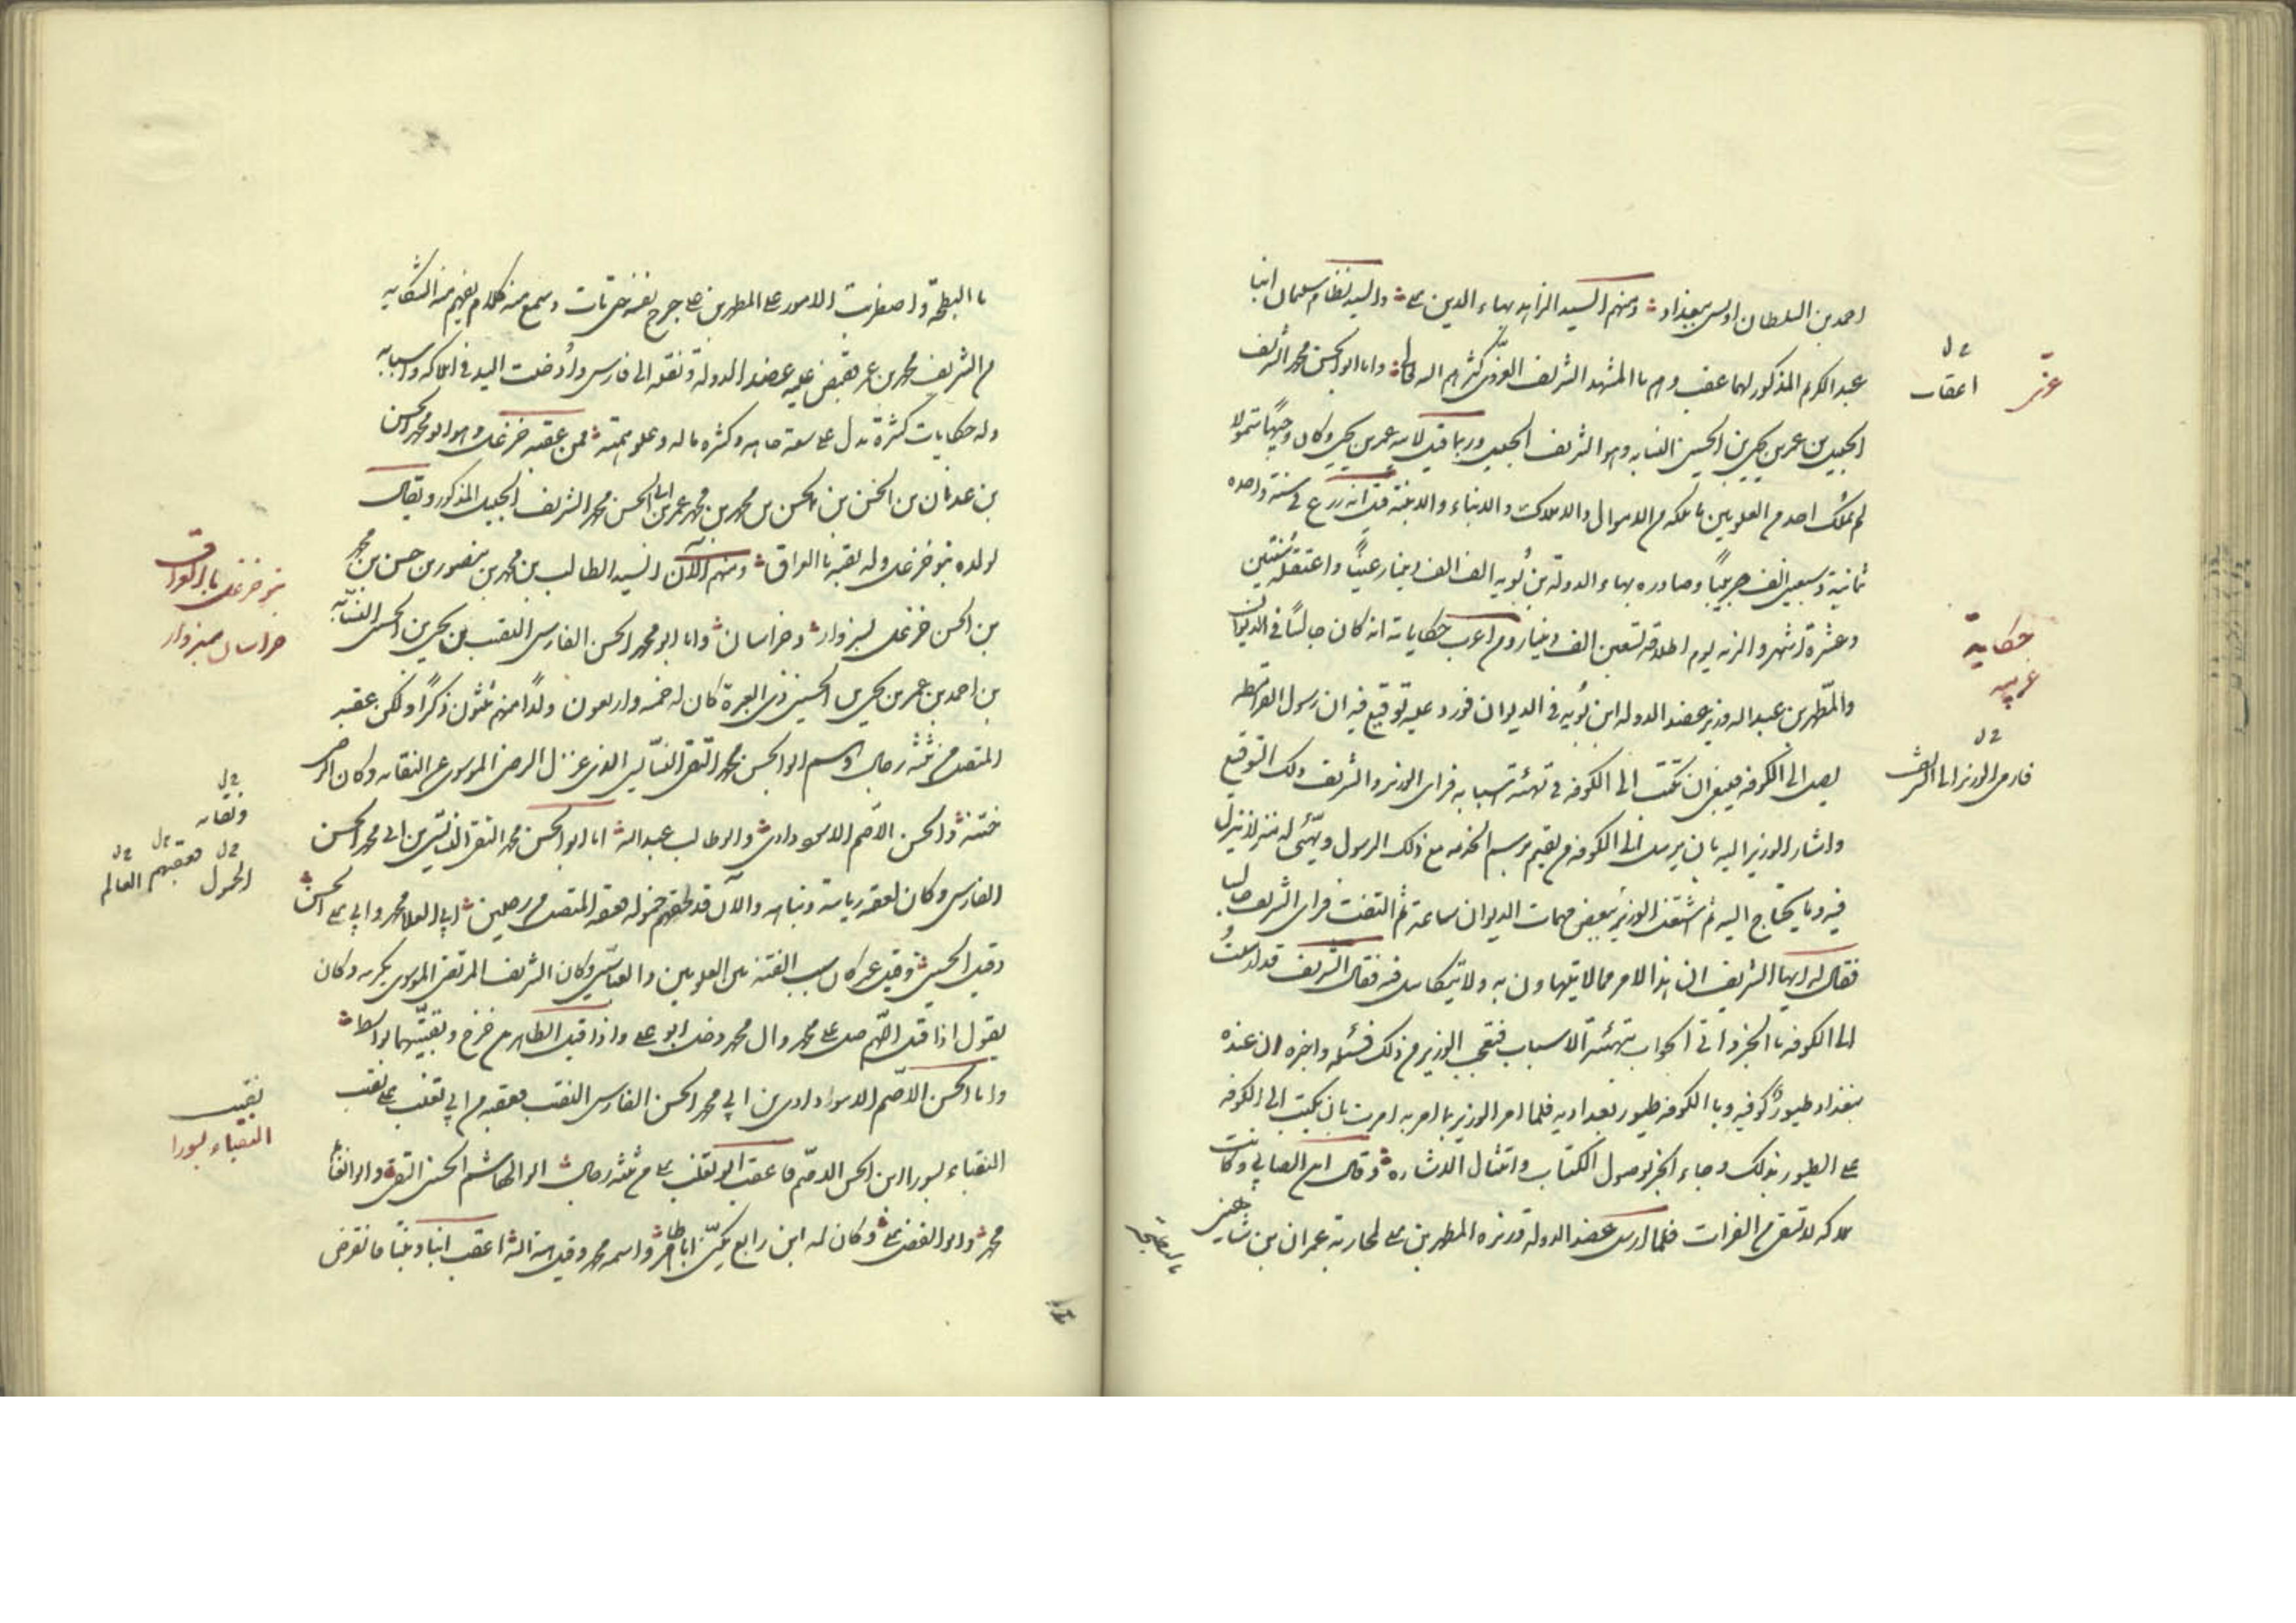 احمد بن السلطان اويس ببغداد ومنهم السيد الزاهد بهاء الدين على والسيد نظام سليمان ابنا
عبد الكريم المذكور لهما عقب وهم با المشهد الشريف الغروى كثرهم الله تعالى واما ابو الحسن محمد الشريف
الجليل بن عمر بن يحيى بن الحسين النسابه وهو الشريف الجليل وربما قيل لابيه عمر بن يحيى وكان وجيهاً متمولا
لم يملك احد من العلويين ما ملكه من الاموال والاملاك و الضياع قيل انه زرع فى سنة واحده
ثمانية وسبعين الف جريباً وصادره بهاء الدولة بن بُويه الف الف دينار عيناً واعتقله سنتين
وعشرة اشهر والزمه يوم اطلاقه تسعين الف دينار ومن اغرب حكاياته انه كان جالساً فى الديوان
والمطهر بن عبد الله وزير عضد الدوله ابن بُويه فى الديوان فورد عليه توقيع فيه ان رسول القرامطه
يصل الى الكوفه فينبغى ان تكتب الى الكوفه فى تهيئة اسبابه فراى الوزير والشريف ذلك التوقيع
واشار الوزير اليه بان يرسل الى الكوفه من يقيم برسم الخدمه مع ذلك الرسول ويهيّئ له منزلا ينزل
فيه وما يحتاج اليه ثم اشتغل الوزير ببعض مهمات الديوان ساعة ثم التفت فراى الشريف جالسا
فقال له ايها الشريف ان هذا الامر مما لا يتهاون به ولا يتكاسل فيه فقال الشريف قد ارسلتُ
الى الكوفه با الخبر واتى الجواب بتهيئة الاسباب فتعجب الوزير من ذلك فسئله واخبره ان عنده
ببغداد طيورٌ كوفيه وبا الكوفه طيور بغداديه فلما امر الوزير بما امر به امرت بان يكتب الى الكوفه
على الطيور بذلك وجاء الخبر بوصول الكتاب وامتثال الاشاره وقال ابن الصابي وكانت
املاكه لا تسقى من الفرات فلما ارسل عضد الدولة وزيره المطهر بن على لمحاربة عمران بن شاهين
عز
اعقاب
حكاية
غريبه
فارمى الوزير الى الشريف
با البطيحة واصغرت الامور على المطهر بن على جرح نفسه حتى مات وسمع منه كلام يفهم منه الشكايه
من الشريف محمد بن عمر فقبض عليه عضد الدولة ونقله الى فارس واُضيفت اليد فى املاكه واسبابه
وله حكايات كثيرة تدل على سعة جاهه وكثرة ماله وعلو همته فمن عقبه خزعل وهو ابو محمد الحسن
بن عدنان بن الحسن بن الحسن بن محمد بن محمد بن عمر بن ابى الحسن محمد الشريف الجليل المذكور ويقال
لولده بنو خزعل وله بقيه با العراق ومنهم الآن السيد ابى طالب بن محمد بن منصور بن حسن بن محمد
بن الحسن خزعل بسبزوار وخراسان واما ابو محمد الحسن الفارس النقيب بن يحيى بن الحسين النسّابه
بن احمد بن عمر بن يحيى بن الحسين ذى العبرة كان له خمسه واربعون ولداً منهم ثلثون ذكراً ولكن عقبه
المتصل من ثلثة رجال وهم ابو الحسن محمد التقى السابسى الذى عزل الرضى الموسوى عن النقابه وكان الرضى
ختنه والحسن الاصم الاسوداوى وابو طالب عبد الله اما ابو الحسن محمد التقى السابسى بن ابى محمد الحسن
الفارس وكان لعقبه رياسة ونباهه والآن قد لحقهم خموله فعقبه المتصل من رجلين ابى العلا محمد وابى على الحسن
وقيل الحسين وقيل عمر كان سبب الفتنة بين العلويين والعباسيين وكان الشريف المرتضى الموسوى يكرهه وكان
يقول اذا قيل اللّهم صل على محمد وال محمد دخل ابو على واذا قيل الطاهرين خرج وبقيّتهما بواسط
واما الحسن الاصّم الاسوداوى بن ابى محمد الحسن الفارس النقيب فعقبه من ابى تغلب على نقيب
النقباء بسورا ابن الحسن الاصّم فاعقب ابو تغلب على من ثلثة رجال ابو الهاشم الحسن التقى وابو الغنائم
محمد وابو الفضل على وكان له ابن رابع يكنّى ابا طاهر واسمه محمد وقيل هبة الله اعقب ابناً وبنتاً فانقرض
بنو خزعل با العراق
خراسان سبزوار
ونقابه
الخمول فعقبهم العالم
نقيب
النقباء بسورا